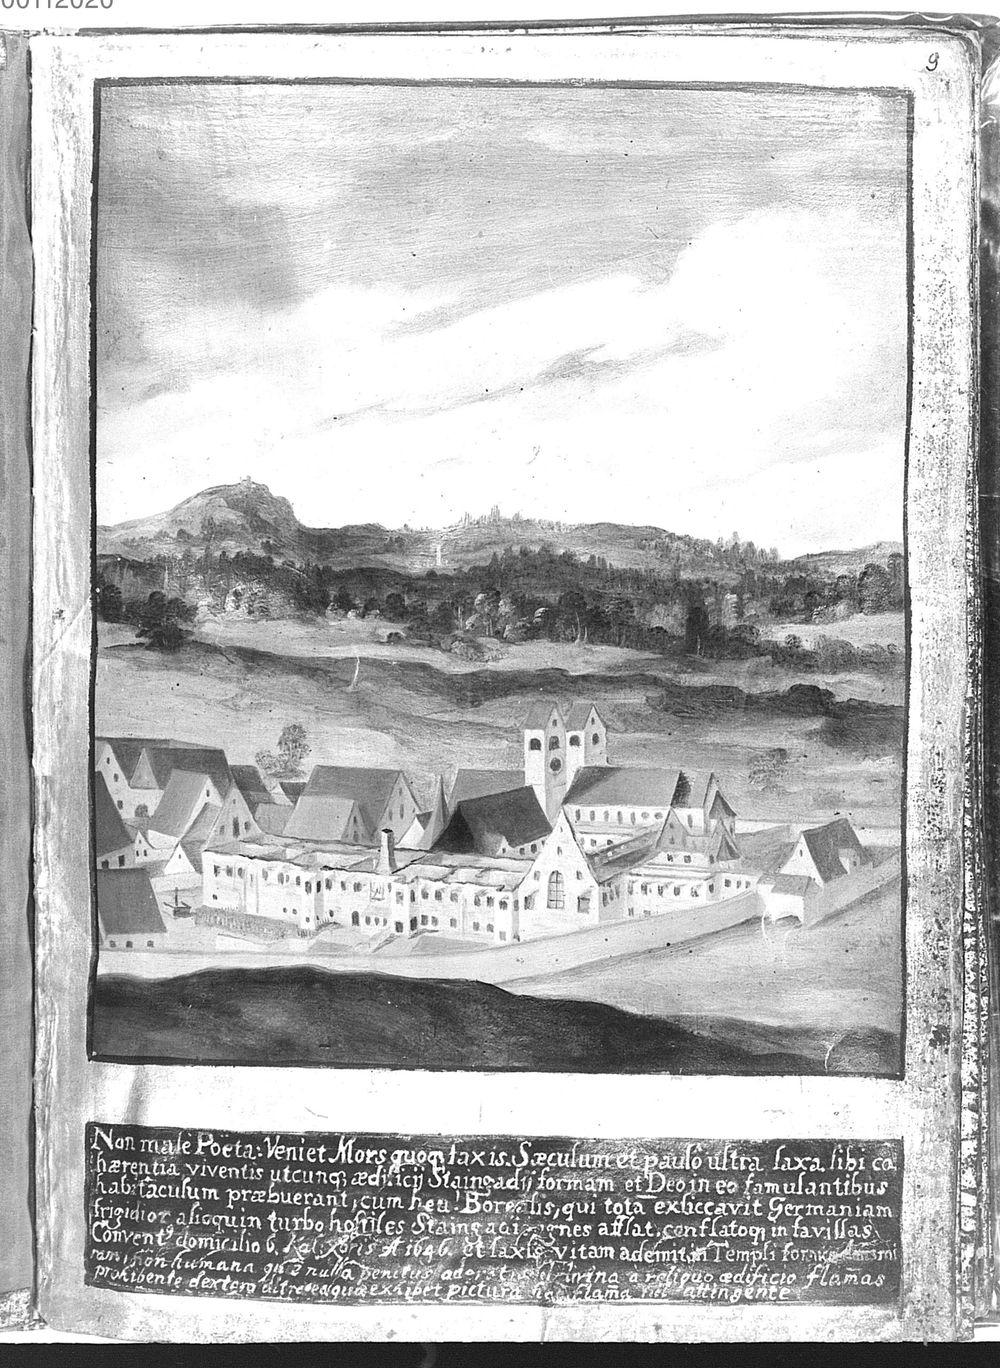 00112020
9
Non male Poeta: Veniet Mors quoq; saxis. Sæculum et paulò ultra saxa sibi co
hærentia viventis utcunq; ædificij Staingadij formam et Deo in eo famulantibus
habitaculum præbuerant, cum heu! Borealis, qui totã exsiccavit Germaniam
frigidior alioquin turbo hostiles Staingadij ignes afflat, conflatoq; in favillas
Convent9 domicilio 6. Kal. Xbris Aº 1646. et saxis vitam ademit, in Templi
non humana penitus a reliquo ædificio flam̃as
prohibente dextera exhibet pictura flam̃a nil attingente